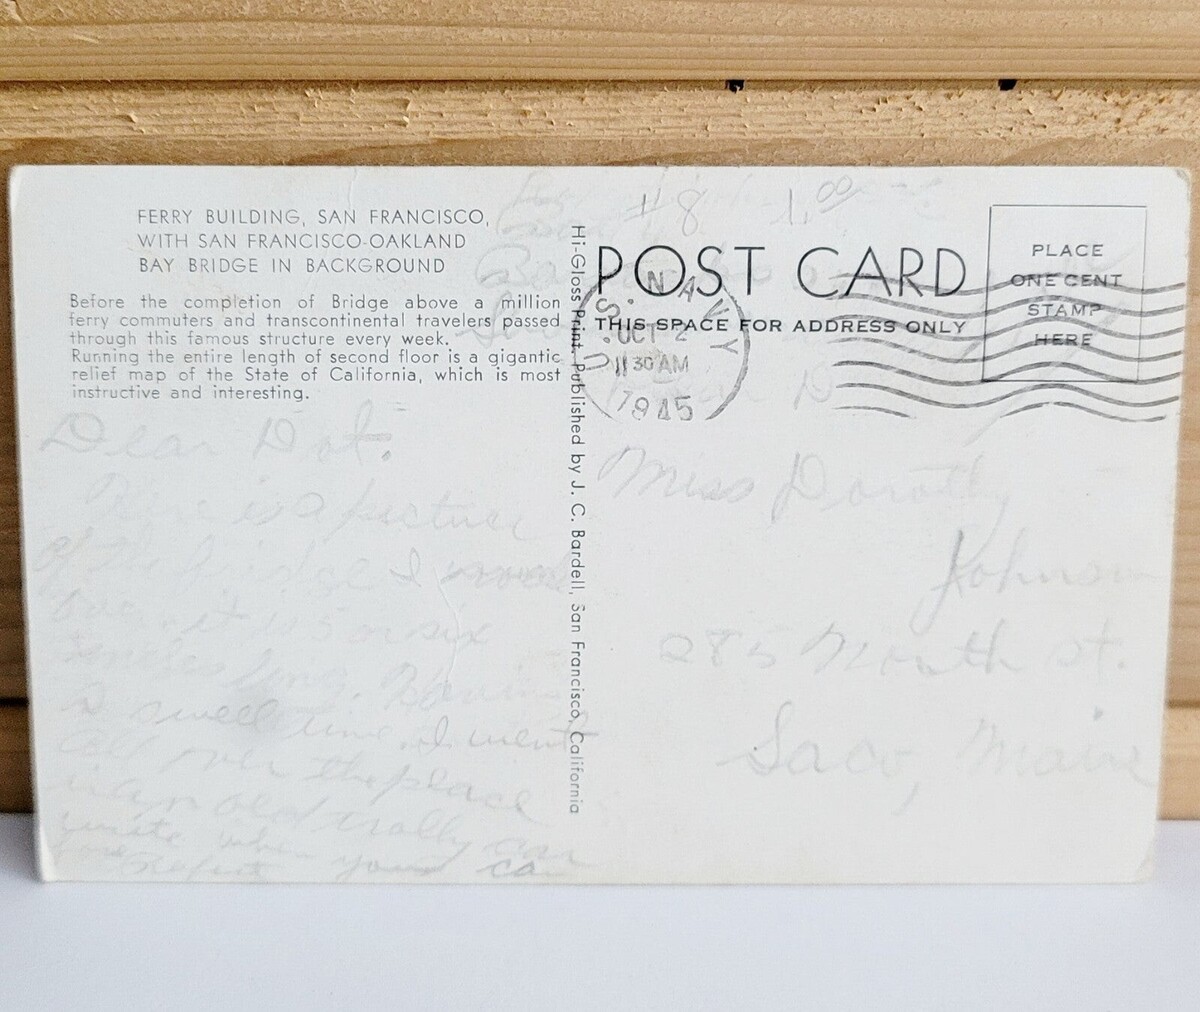 FERRY BUILDING, SAN FRANCISCO,
WITH SAN FRANCISCO-OAKLAND
BAY BRIDGE IN BACKGROUND
Before the completion of Bridge above a million
ferry commuters and transcontinental travelers passed
through this famous structure every week.
Running the entire length of second floor is a gigantic
relief map of the State of California, which is most
instructive and interesting.
Dear Dot.
Here is a picture
of the bridge I
it is 5 or six
miles long. Having
a swell time. I went
all over the place
in an old trolly car
write when you can
Hi-Gloss Print. Published by J. C. Bardell, San Francisco, California
#8 1.00
POST CARD
THIS SPACE FOR ADDRESS ONLY
U. S. NAVY
OCT 2
11 30 AM
1945
PLACE
ONE CENT
STAMP
HERE
Miss Dorothy
Johnson
285 North St.
Saco, Maine